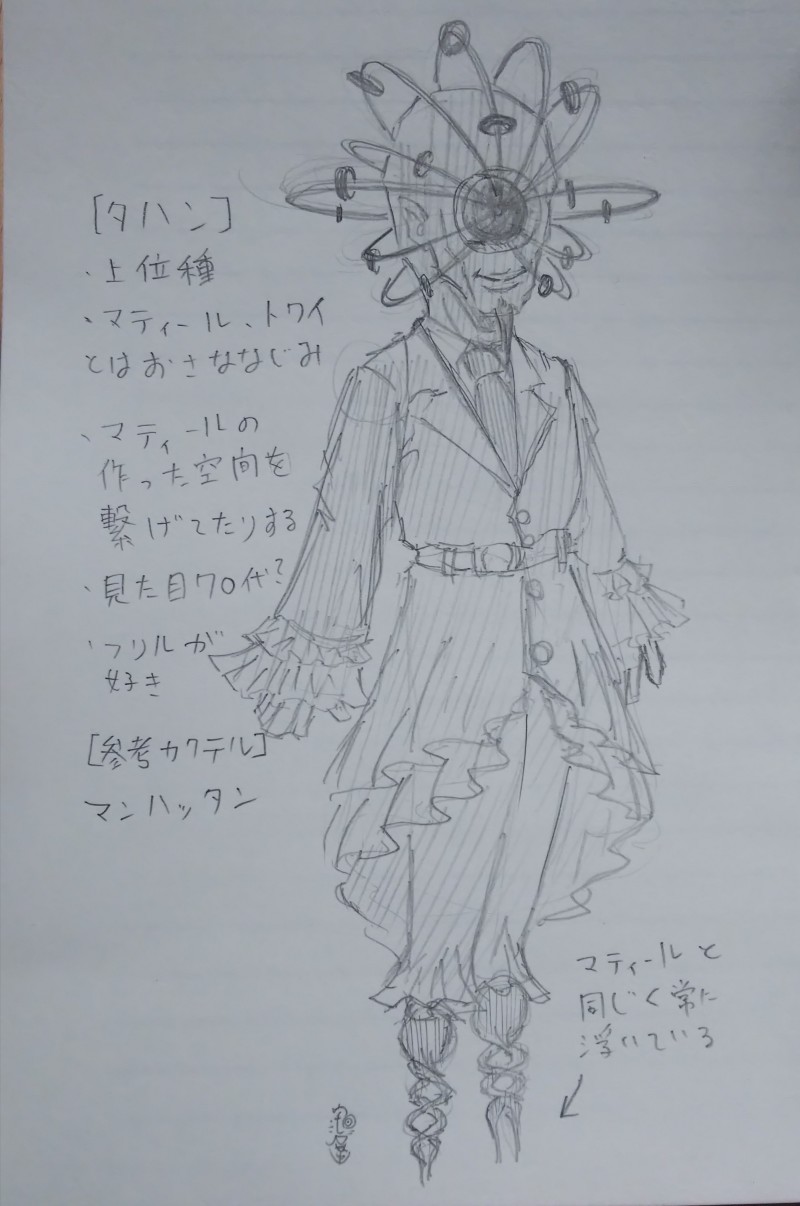 [タハン]
・上位種
・マティール、トワイ
とはおさななじみ
・マティールの
作った空間を
繋げてたりする
・見た目70代?
・フリルが
好き
[参考カクテル]
マンハッタン
マティールと
同じく常に
浮いている